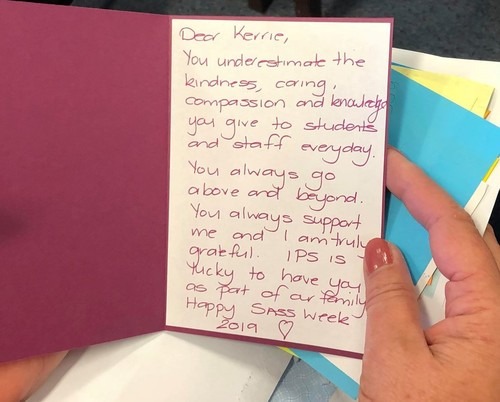 Dear Kerrie,
You underestimate the
kindness, caring,
compassion and knowledge
you give to students
and staff everyday.
You always go
above and beyond.
You always support
me and I am truly
grateful. IPS is
lucky to have you
as part of our family
Happy SASS Week
2019 ♡